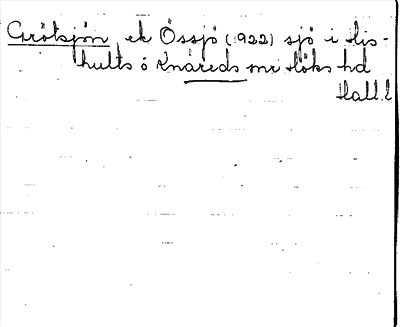 Grötsjön, ek Össjö (1922) sjö i His-
hults o Knäreds snr Höks hd
Hall. l